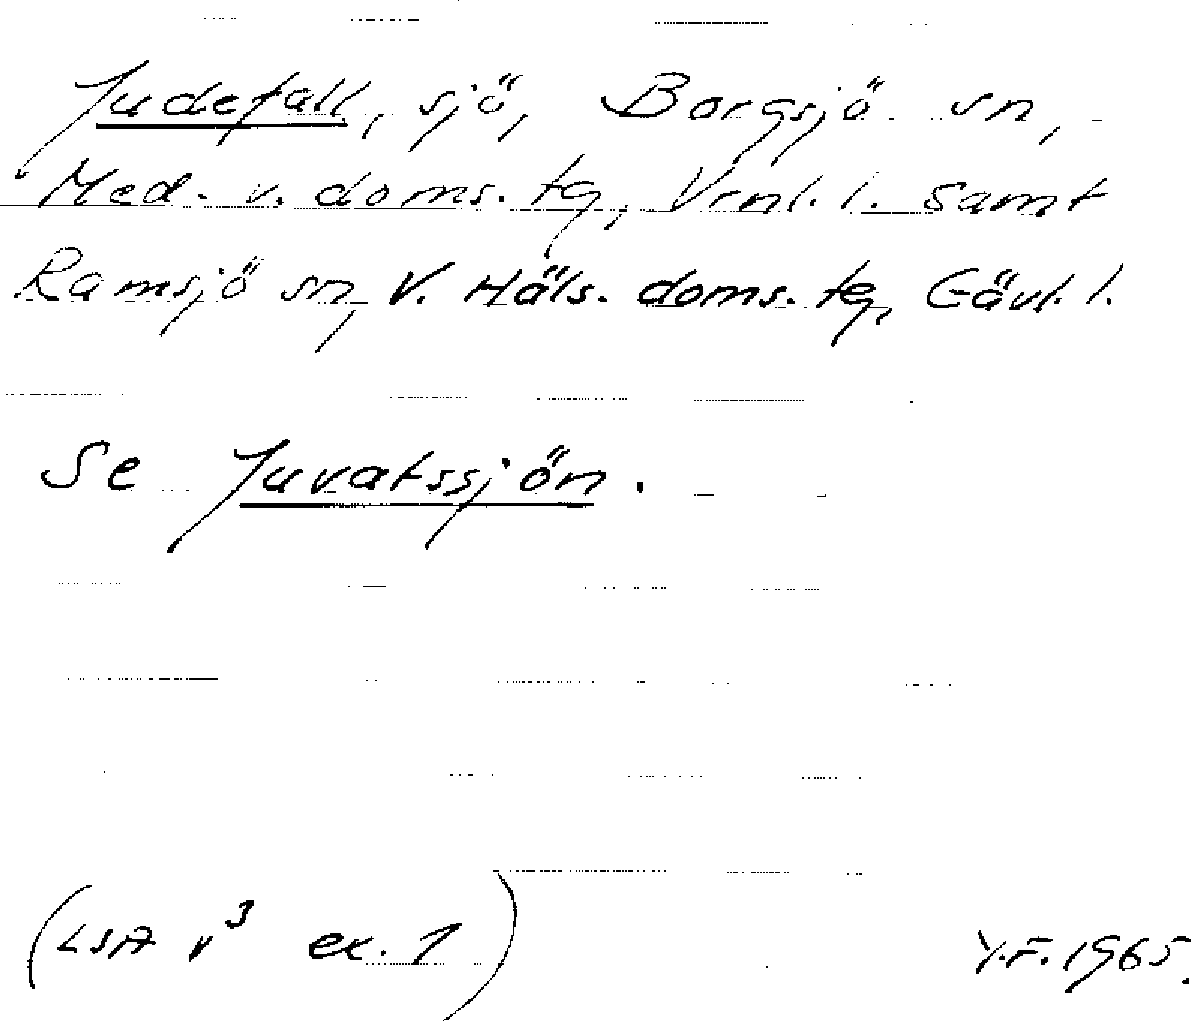 Judefall, sjö, Borgsjö sn,
Med. v. doms. tg, Vrnl. l. samt
Ramsjö sn, V. Häls. doms. tg, Gävl. l.
Se Juvatssjön.
(LSA v³ ex. 1) Y.F. 1965.